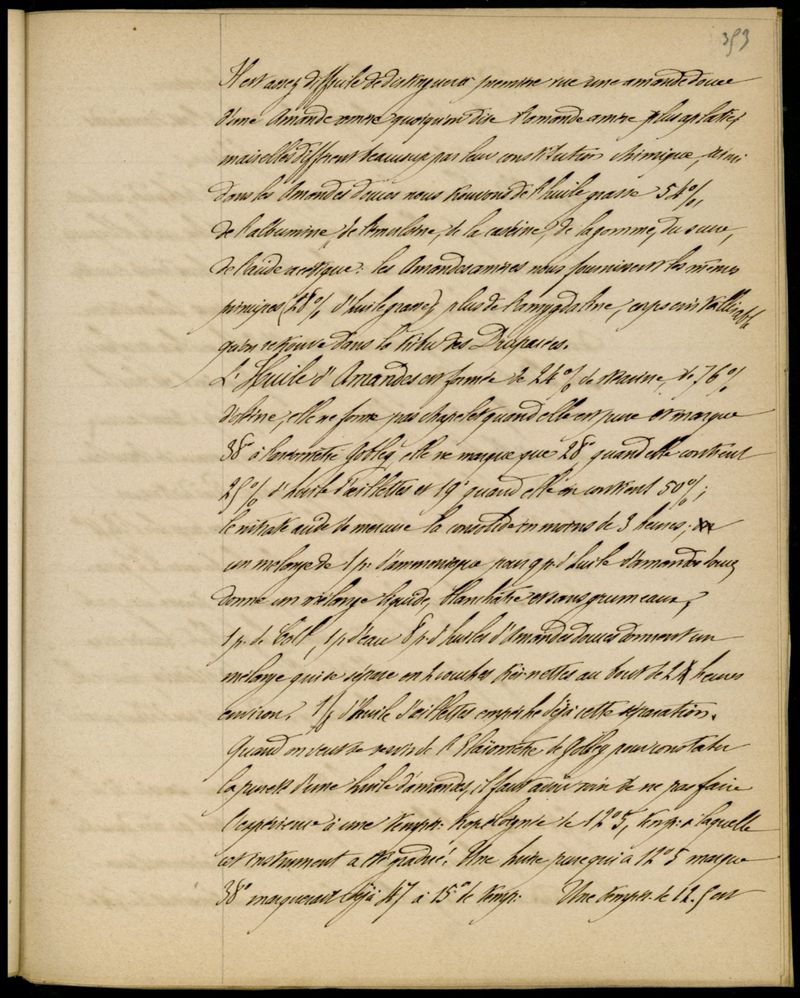 393
Il est assez difficile de distinguer à première vue une amande douce
d'une Amande amère quoiqu'on dise l'amande amère plus aplatie,
mais elles diffèrent beaucoup par leur constitution chimique, ainsi
dans les Amandes douces nous trouvons de l'huile grasse 54%,
de l'albumine, de l'émulsine, de la caséine, de la gomme, du sucre,
de l'acide acétique : les Amandes amères nous fournissent les mêmes
principes (28% d'huile grasse) plus de l'amygdaline, corps cristallisable
qu'on retrouve dans la tribu des Drupacées.
L'Huile d'Amandes est formée de 24% de stéarine, de 76%
d'oléine, elle ne forme pas chapelet quand elle est pure et marque
38° à l'areomètre Gobley, elle ne marque que 28° quand elle contient
25% d'huile d'oeillettes et 19° quand elle en contient 50%;
le nitrate acide de mercure la consolide en moins de 3 heures;
un mélange de 1 p. d'ammoniaque pour 9 p. d'huile d'amandes douces
donne un mélange liquide, blanchâtre et sans grumeaux,
1 p. de 1 p. d'eau 8 p. d'huiles d'Amandes douces donnent un
mélange qui se sépare en 2 couches très nettes au bout de 24 heures
environ. 1/5 d'huile d'oeillettes empêche déjà cette séparation.
Quand on veut se servir de l'Elaïomètre de Gobley pour constater
la pureté d'une huile d'amandes, il faut avoir soin de ne pas faire
l'expérience à une tempre. trop éloignée de 12°5, temp. à laquelle
cet instrument a été gradué. Une huile pure qui à 12°5 marque
38° marquerait déjà 47 à 15° de temp. Une tempre. de 12.5 est